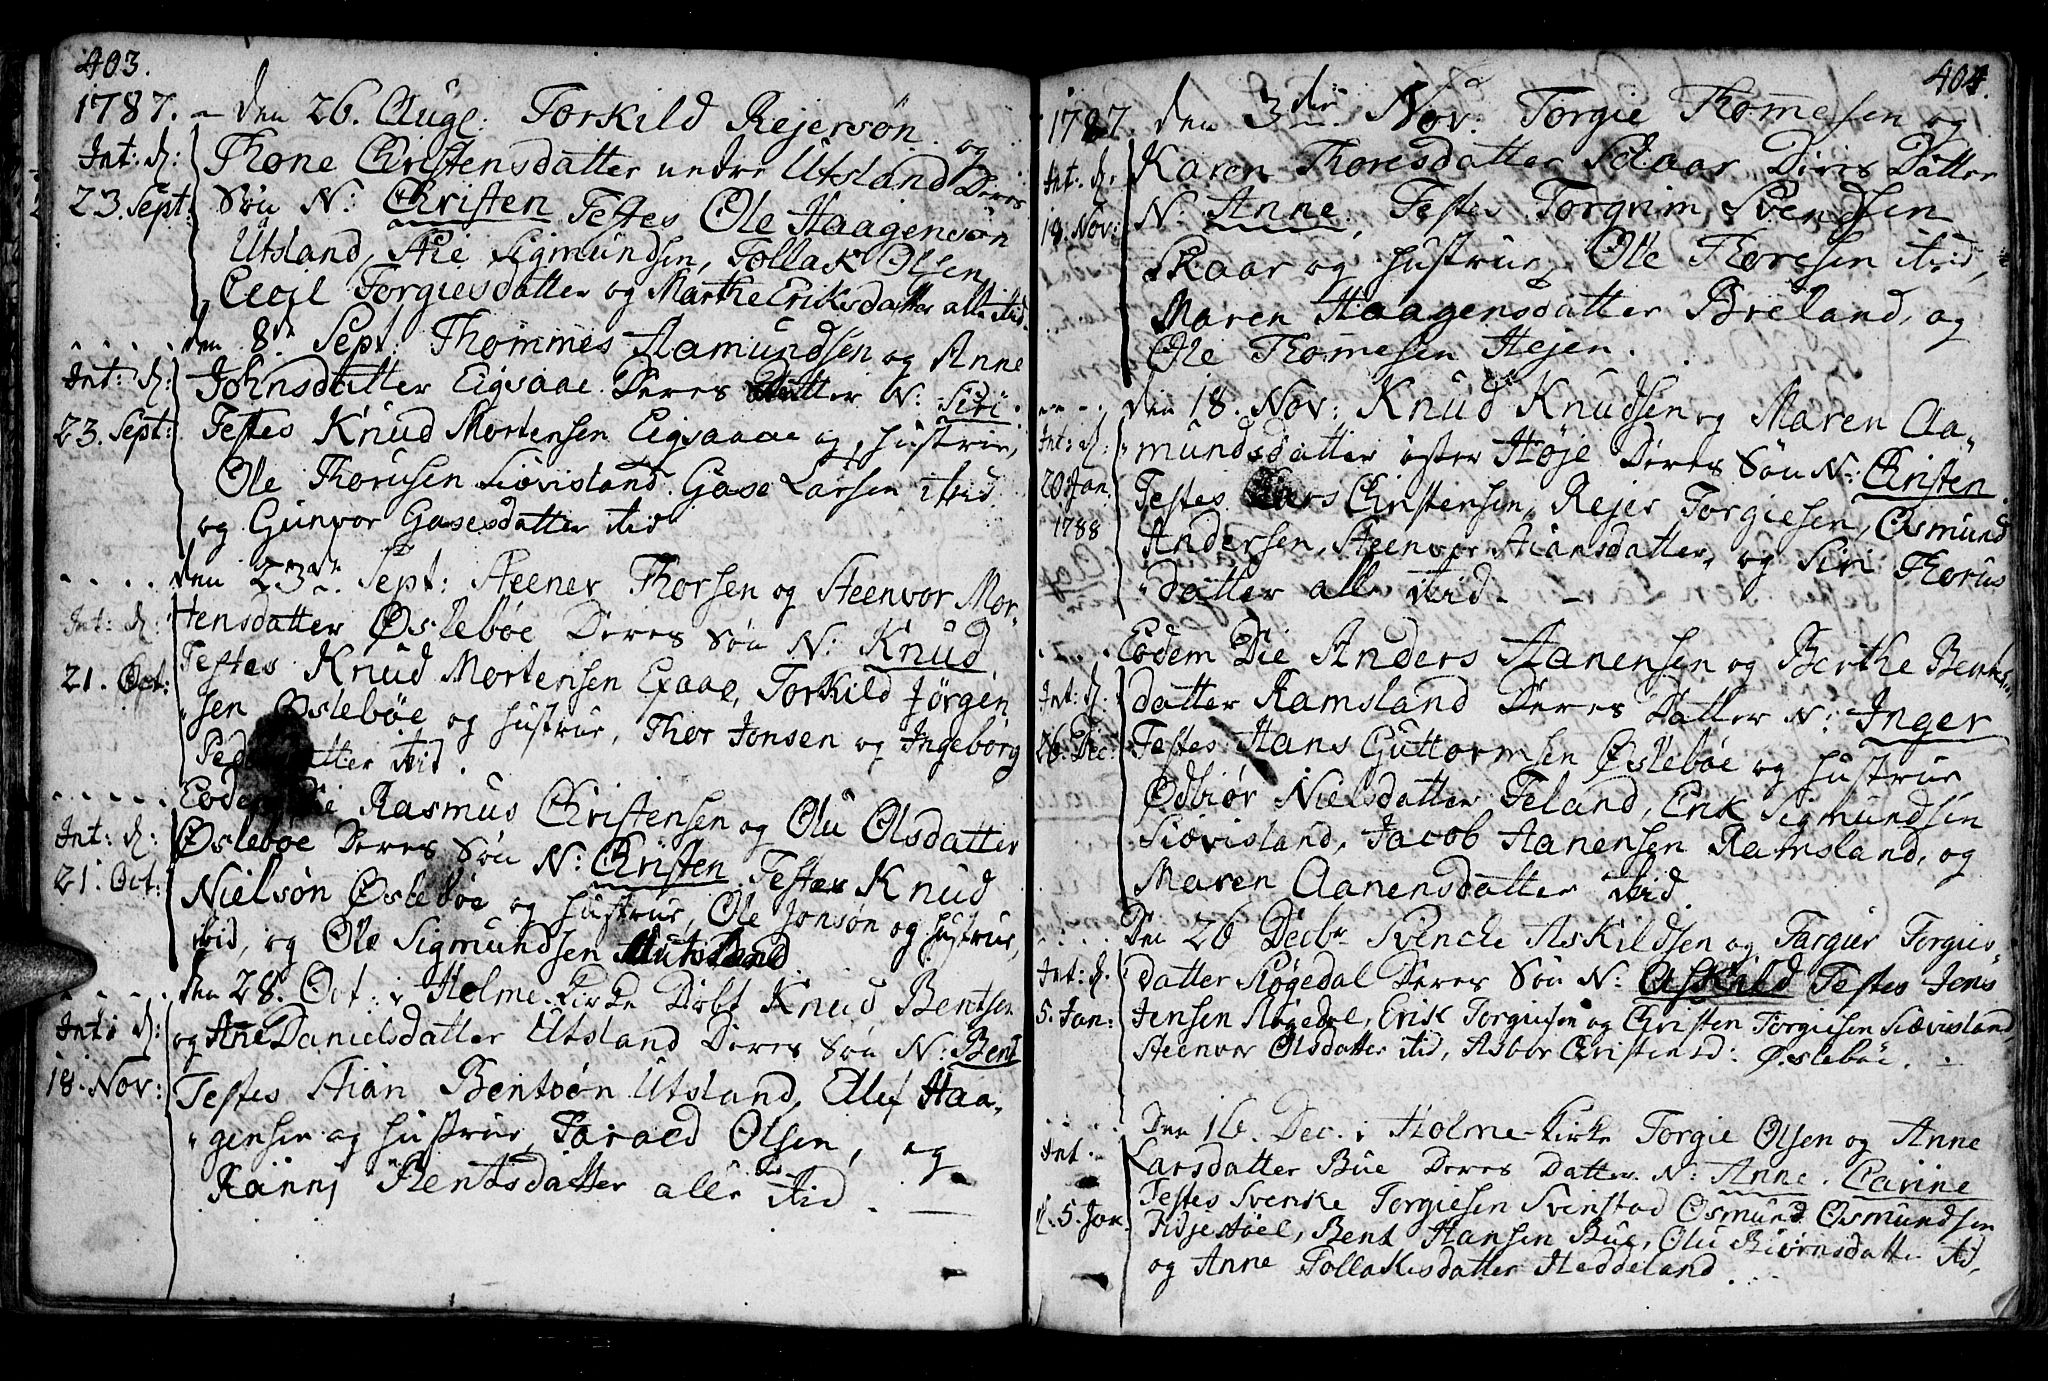 403.
1787. - den 26. Aug: Torkild Rejersøn og
Int: d: Thone Christensdatter nedre Utsland Deres
23. Sept: Søn N: Christen Testes Ole Haagensøn
Utsland, Sigmundsen, Tollak Olsen,
Torgiesdatter og Marthe Eriksdatter alle ibid.
den 8de Sept: Thommes Aamundsen og Anne
Int: d: Johnsdatter Eigsaae Deres Datter N: Siri.
23. Sept: Testes Knud Mortensen Eigsaaae og Hustrue,
Ole Thorusen Siøvisland. Gase Larsen ibid
og Gunvor Gasesdatter ibid
den 23de Sept: Steener Thorsen og Steenvor Mor-
Int: d: tensdatter Øslebøe Deres Søn N: Knud
21. Oct: Testes Knud Mortensen Exaae, Torkild Jørgen
sen Øslebøe og Hustrue, Thor Jonsen og Ingeborg
ibid.
Eodem Die Rasmus Christensen og Olu Olsdatter
Int: d: Øslebøe Deres Søn N: Christen Testes Knud
21. Oct: Nielsøn Øslebøe og Hustrue, Ole Jonsøn og Hustrue,
ibid, og Ole Sigmundsen
den 28. Oct: i Holme-Kirke Døbt Knud Bentsen
Int: d: og Ane Danielsdatter Utsland Deres Søn N: Bent
18. Nov: Testes Stian Bentsøn Utsland, Ellef Haa-
gensen og Hustrue, Tarald Olsen, og
Rønnj Bentsdatter alle ibid.
404.
1787. den 3die Nov: Torgie Thomesen og
Int: d: Karen Thoresdatter Skaar Deres Datter
18. Nov: N: Anne. Testes Torgrim Svendsen
Skaar og Hustrue, Ole Thoresen ibid,
Maren Haagensdatter Breland, og
Ole Thomesen Hejen.
den 18. Nov: Knud Knudsen og Maren Aa-
Int: d: mundsdatter øster Høje Deres Søn N: Christen.
20 Jan. Testes Christensen, Rejer Torgiesen, Osmund
1788 Andersen, Steenvor Stiansdatter, og Siri Thorus
datter alle ibid.
Eodem Die Anders Aanensen og Berthe Bents
Int: d: datter Ramsland Deres Datter N: Inger
26. Dec: Testes Hans Guttormsen Øslebøe og Hustrue
Odbiør Nielsdatter Feland, Erik Sigmundsen
Siøvisland, Jacob Aanensen Ramsland, og
Maren Aanensdatter ibid.
Den 26 Decbr Svencke Askildsen og Targier Torgies-
Int: d: datter Støgedal Deres Søn N: Askild Testes Jens
5. Jan: Jensen Støgedal, Erik Torgiesen og Christen Torgiesen Siøvisland,
Steenvor Olsdatter ibid, Asbor Christensd: Øslebøe.
Den 16. Dec. i Holme-Kirke Torgie Olsen og Anne
Int. Larsdatter Bue Deres Datter N: Anne. Carine
d. 5. Jan. Testes Svenke Torgiesen Svinstad Osmund Osmundsen
Bent Hansen Bue, Olu Biørnsdatter ibid,
og Anne Tollaksdatter Heddeland.